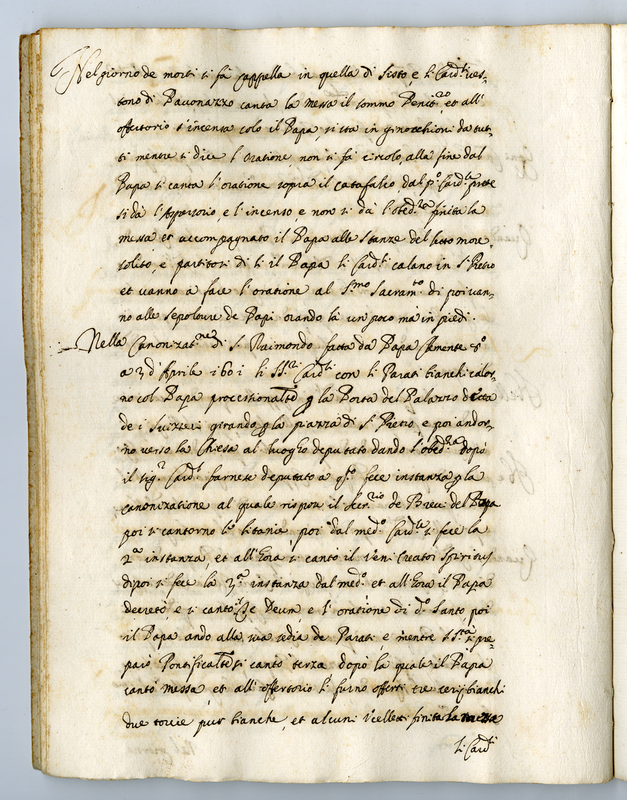 Nel giorno de morti si fà cappella in quella di Sisto, e li Card.li ves-
tono di Pavonazzo canta la messa il sommo Penit.ro, et all'
offertorio s'incensa solo il Papa, si sta in ginocchioni da tut-
ti mentre si dice l'oratione, non si fà circolo, alla fine dal
Papa si canta l'oratione sopra il catafalco dal p.o Card.le prete
si dà l'Aspersorio, e l'incenso e non si dà l'obed.za finita la
messa et accompagnato il Papa alle stanze del letto more
solito, e partitosi di li il Papa li Card.li calano in S. Pietro
et vanno a fare l'oratione al S.mo Sacram.to di poi van-
no alle sepolture de Papi orando là un poco mà in piedi.
Nella Canonizat.ne di S. Raimondo fatta da Papa Clemente 8.o
a 29 d'Aprile 1601 li SS.ri Card.li con li Parati bianchi calor-
no col Papa processionalte p la Porta del Palazzo detta
de i Suizzeri girando p la piazza di S. Pietro e poi andor-
no verso la Chiesa al luogho deputato dando l'obed.za dopò
il sig.r Card.l farnese deputato a q.o fece instanza p la
canonizatione al quale rispose il Secr.rio de Brevi del Papa
poi si cantorno le litanie, poi dal med.o Card.le si fece la
2.a instanza, et all'hora si cantò il Veni Creator Spiritus
dipoi si fece la 3.a instanza dal med.o et all'hora il Papa
decretò e si cantò il Te Deum, e l'oratione di d.o Santo poi
il Papa andò alla sua sedia de Parati e mentre S. S.tà si pre-
parò Pontificalte si cantò terza dopò la quale il Papa
cantò messa, et all'offertorio li furno offerti tre cerij bianchi
due torcie pur bianche, et alcuni Vcelletti finita la messa
li Card.li